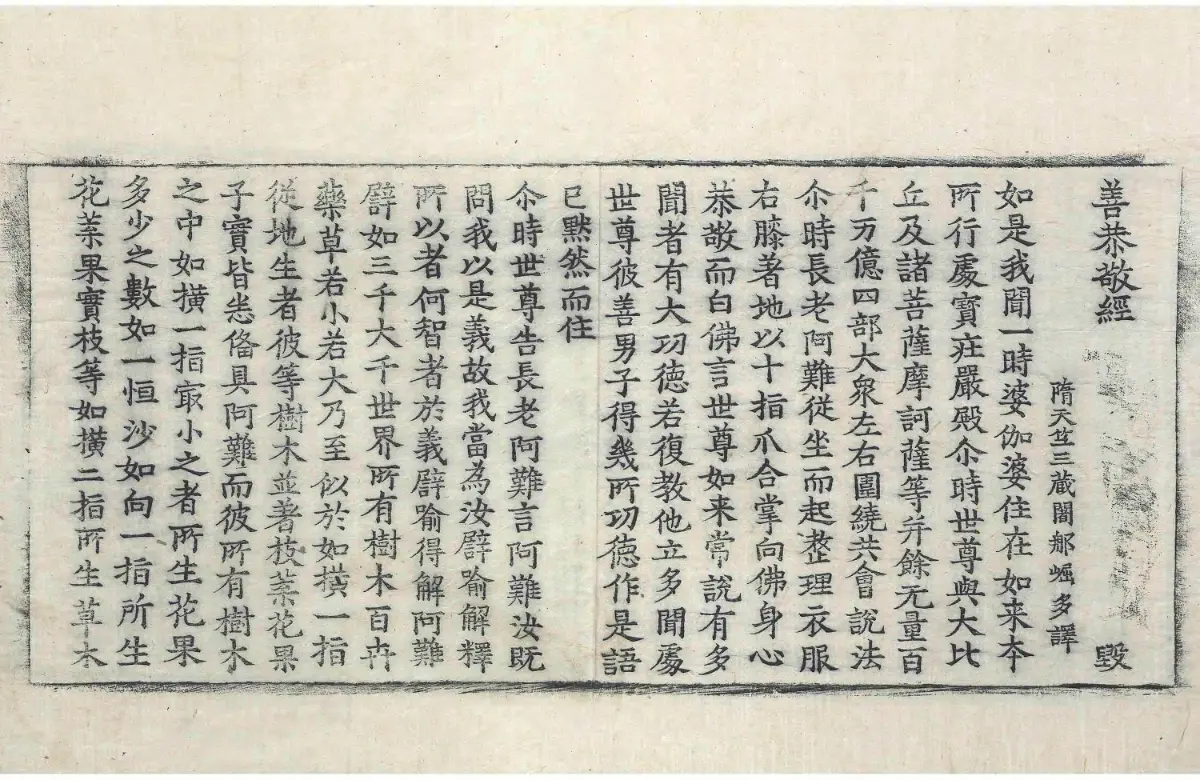 善恭敬經 毀
隋天竺三藏闍那崛多譯
如是我聞一時婆伽婆住在如来夲
所行處寶莊嚴殿尒時世尊與大比
丘及諸菩薩摩訶薩等并餘无量百
千万億四部大衆左右圍繞共會說法
尒時長老阿難從坐而起整理衣服
右膝著地以十指爪合掌向佛身心
恭敬而白佛言世尊如来常說有多
聞者有大功德若復教他立多聞處
世尊彼善男子得幾所功德作是語
已黙然而住
尒時世尊告長老阿難言阿難汝既
問我以是義故我當為汝譬喻解釋
所以者何智者於義譬喻得解阿難
譬如三千大千世界所有樹木百卉
藥草若小若大乃至似於如撗一指
從地生者彼等樹木並著枝葉花果
子實皆悉俻具阿難而彼所有樹木
之中如撗一指冣小之者所生花果
多少之數如一恒沙如向一指所生
花葉果實枝等如撗二指所生草木